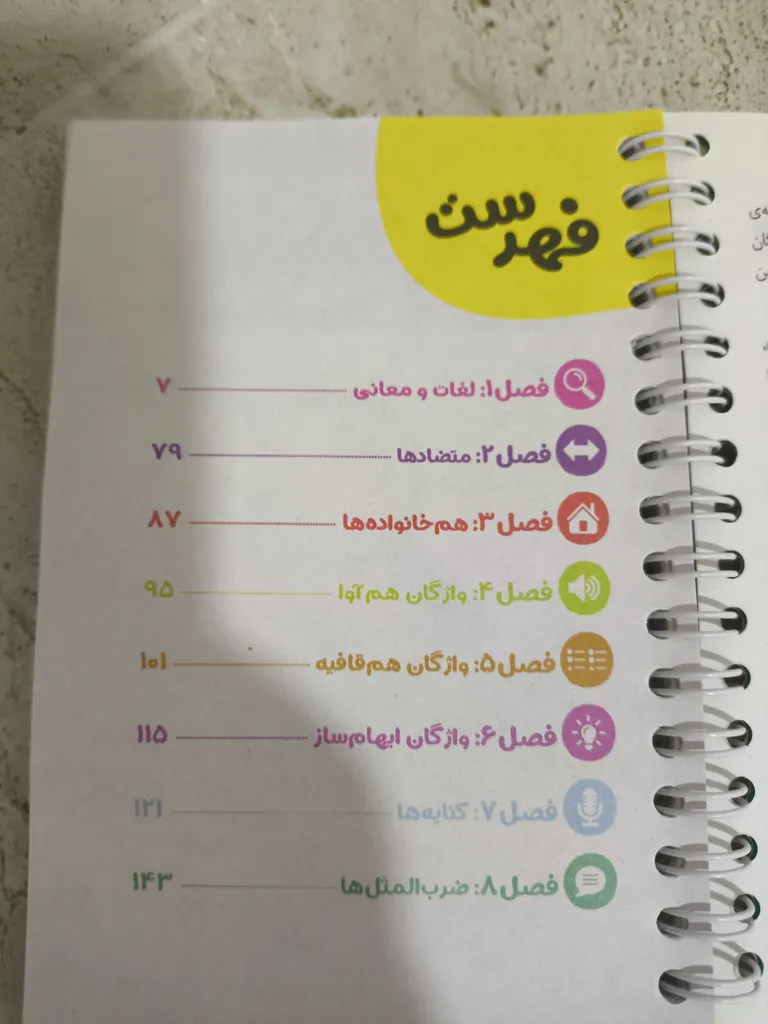 فهرست
فصل ۱: لغات و معانی ۷
فصل ۲: متضادها ۷۹
فصل ۳: هم‌خانواده‌ها ۸۷
فصل ۴: واژگان هم‌آوا ۹۵
فصل ۵: واژگان هم‌قافیه ۱۰۱
فصل ۶: واژگان ایهام‌ساز ۱۱۵
فصل ۷: کنایه‌ها ۱۲۱
فصل ۸: ضرب‌المثل‌ها ۱۴۳